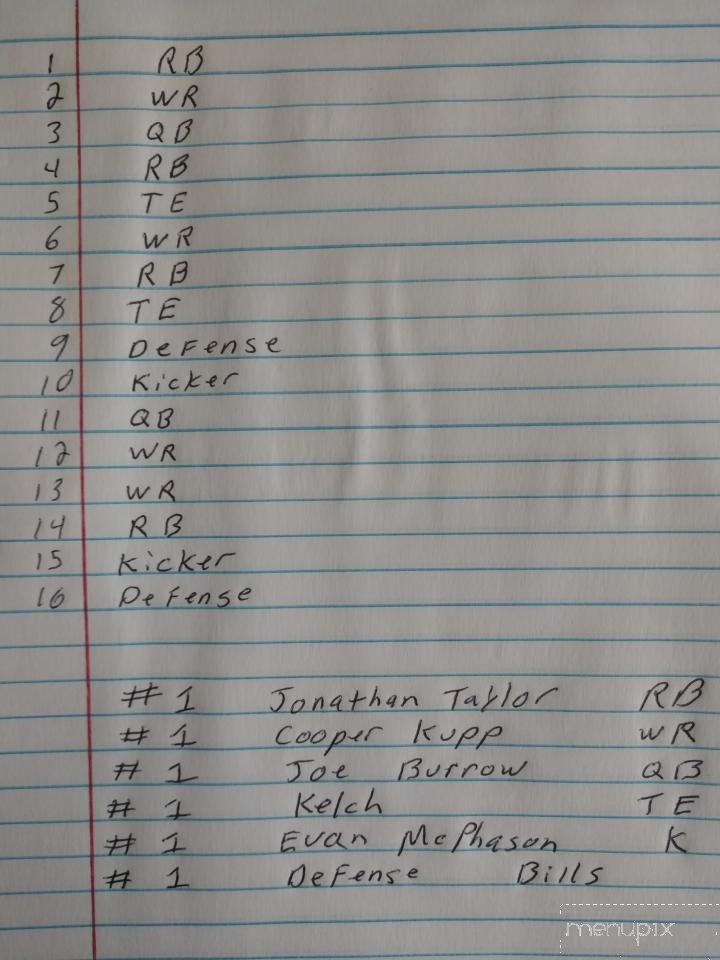 1 RB
2 WR
3 QB
4 RB
5 TE
6 WR
7 RB
8 TE
9 Defense
10 Kicker
11 QB
12 WR
13 WR
14 RB
15 Kicker
16 Defense
# 1 Jonathan Taylor RB
# 1 Cooper Kupp WR
# 1 Joe Burrow QB
# 1 Kelch TE
# 1 Evan McPhason K
# 1 Defense Bills
menupix